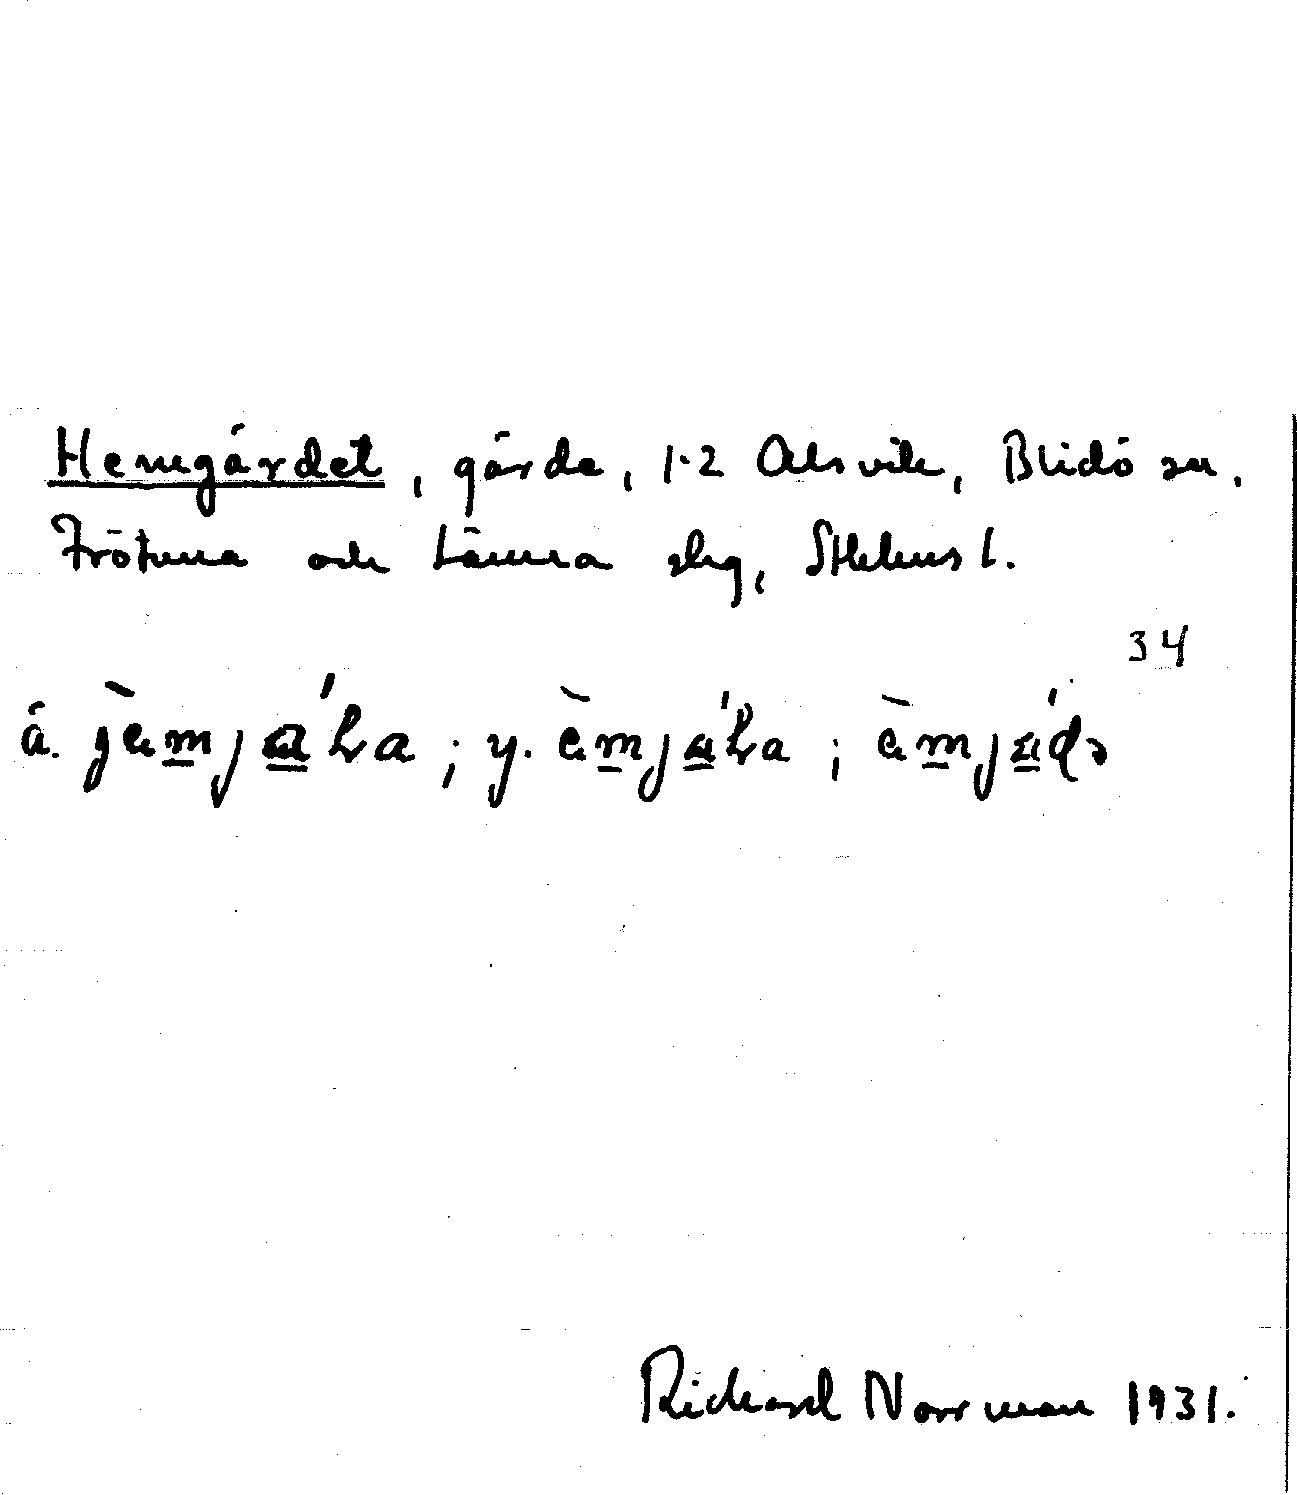 Hemgärdet, gärde, 1-2 Alsvik, Blidö sn,
Frötuna och Länna skg, Sthlms l.
34
ä. jèmjáha ; y. èmjáha ; èmjádə
Richard Norrman 1931.